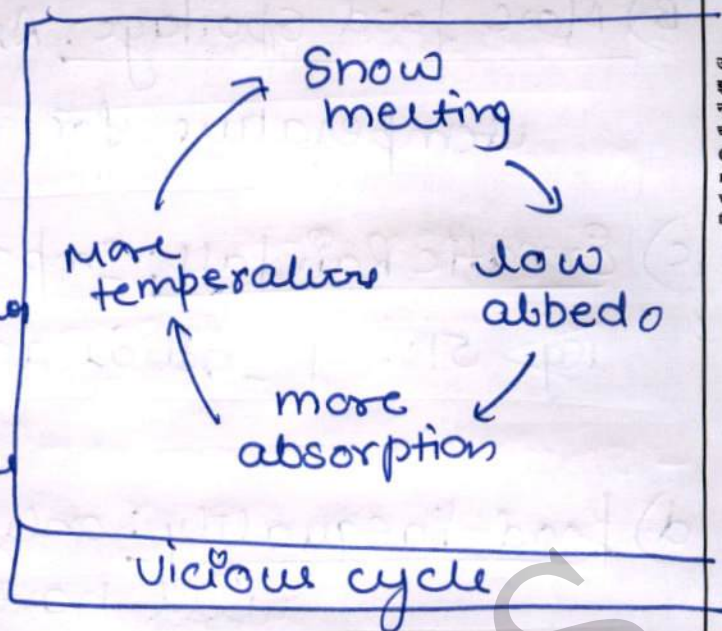 Snow
melting
low
albedo
more
absorption
More
temperature
Vicious cycle